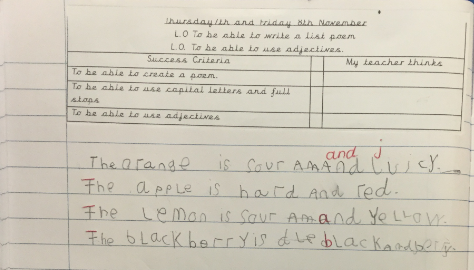 Thursday 7th and Friday 8th November
L.O To be able to write a list poem
L.O. To be able to use adjectives.
Success Criteria My teacher thinks
To be able to create a poem.
To be able to use capital letters and full
stops
To be able to use adjectives
and j
The orange is sour AmAnd Luicy.
The apple is hard And red.
The Lemon is sour Amand YeLLow.
The bLackberry is bLack